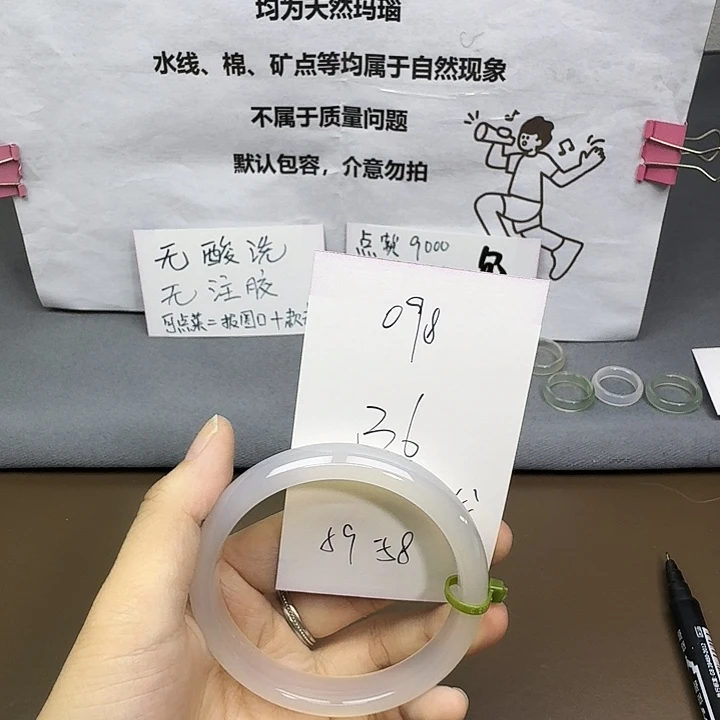 均为天然玛瑙
水线、棉、矿点等均属于自然现象
不属于质量问题
默认包容，介意勿拍
无酸洗
无注胶
可点菜=报圈口+款
点款 9000
098
36
59 58